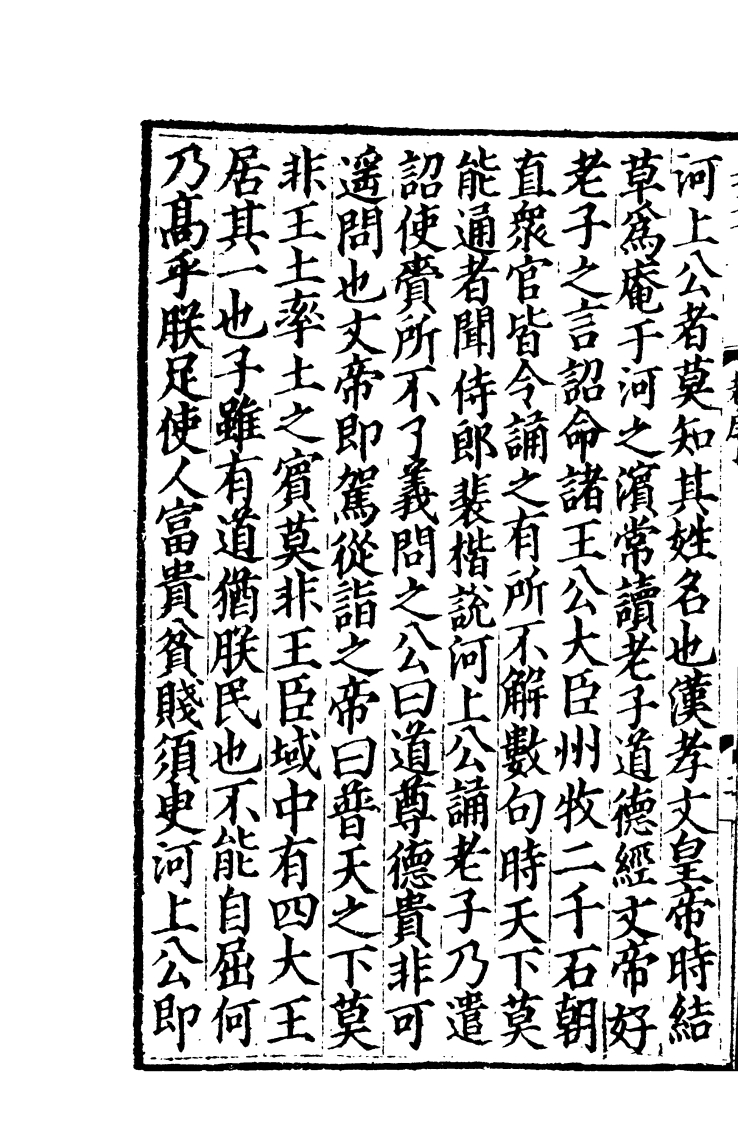 河上公者莫知其姓名也漢孝文皇帝時結
草爲庵于河之濱常讀老子道德經文帝好
老子之言詔命諸王公大臣州牧二千石朝
直衆官皆令誦之有所不解數句時天下莫
能通者聞侍郎裴楷說河上公誦老子乃遣
詔使賫所不了義問之公曰道尊德貴非可
遥問也文帝即駕從詣之帝曰普天之下莫
非王土率土之賓莫非王臣域中有四大王
居其一也子雖有道猶朕民也不能自屈何
乃髙乎朕足使人富貴貧賤須臾河上公即